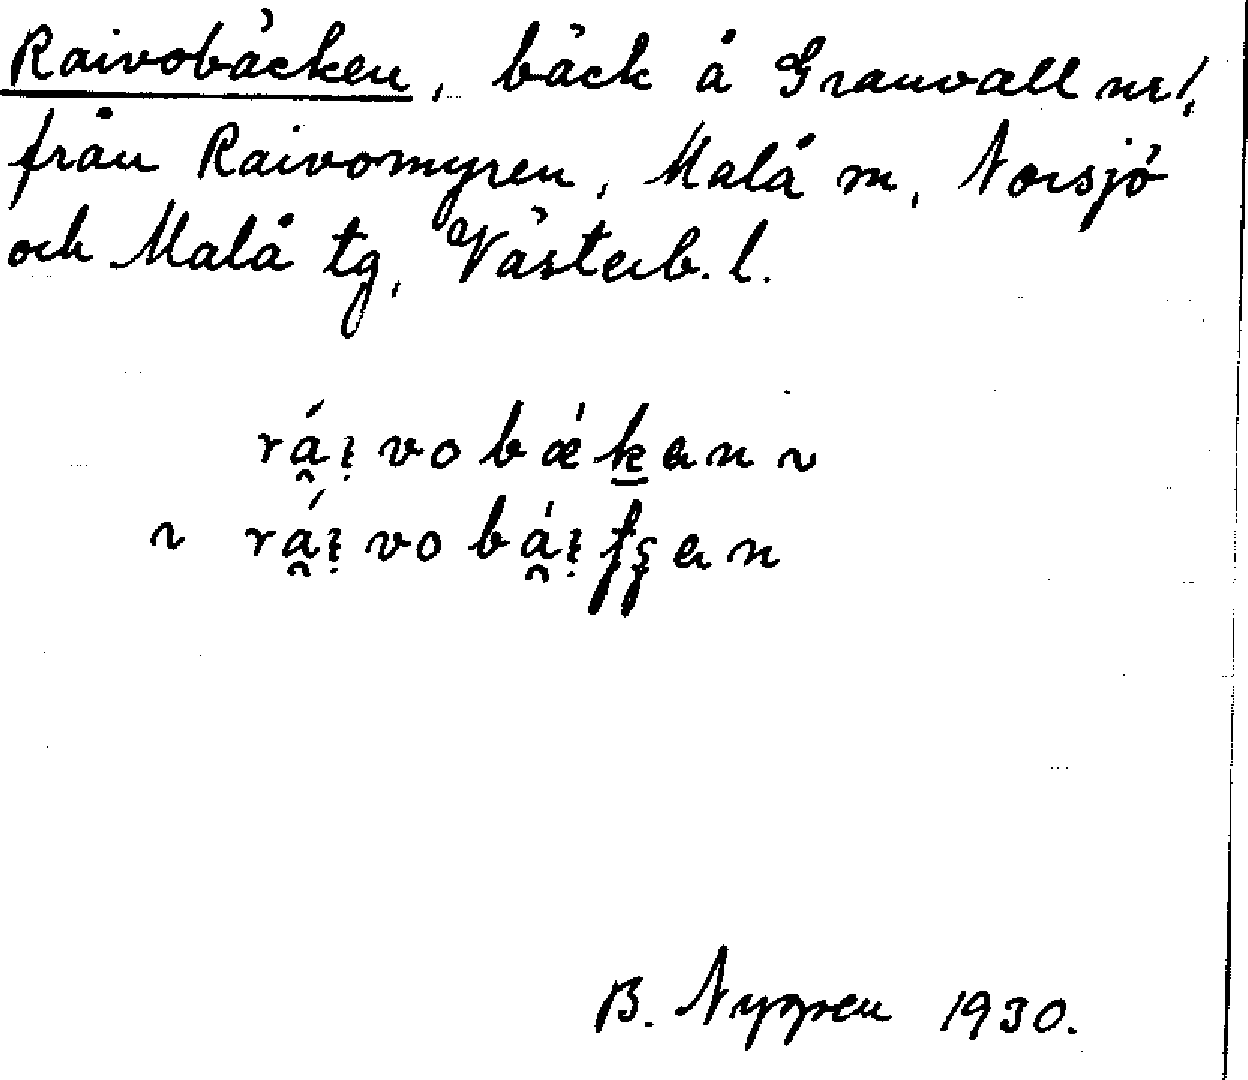 Raivobäcken, bäck å Granvall nr 1,
från Raivomyren, Malå m, Norsjö
och Malå tg, Västerb. l.
rá̯ı̣vobǽḵan ~
~ rá̯ı̣vobá̯ı̣tʂan
B. Nygren 1930.